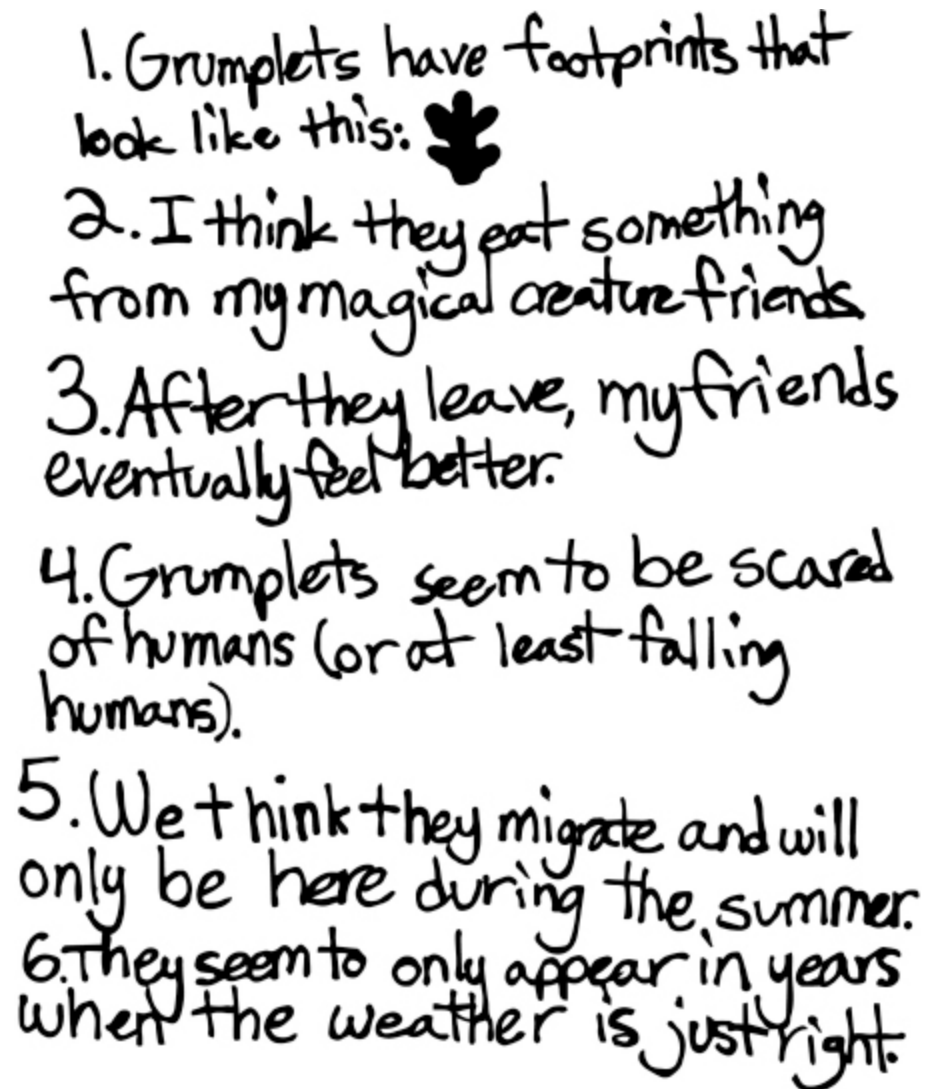 1. Grumplets have footprints that
look like this:
2. I think they eat something
from my magical creature friends.
3. After they leave, my friends
eventually feel better.
4. Grumplets seem to be scared
of humans (or at least falling
humans).
5. We think they migrate and will
only be here during the summer.
6. They seem to only appear in years
when the weather is just right.